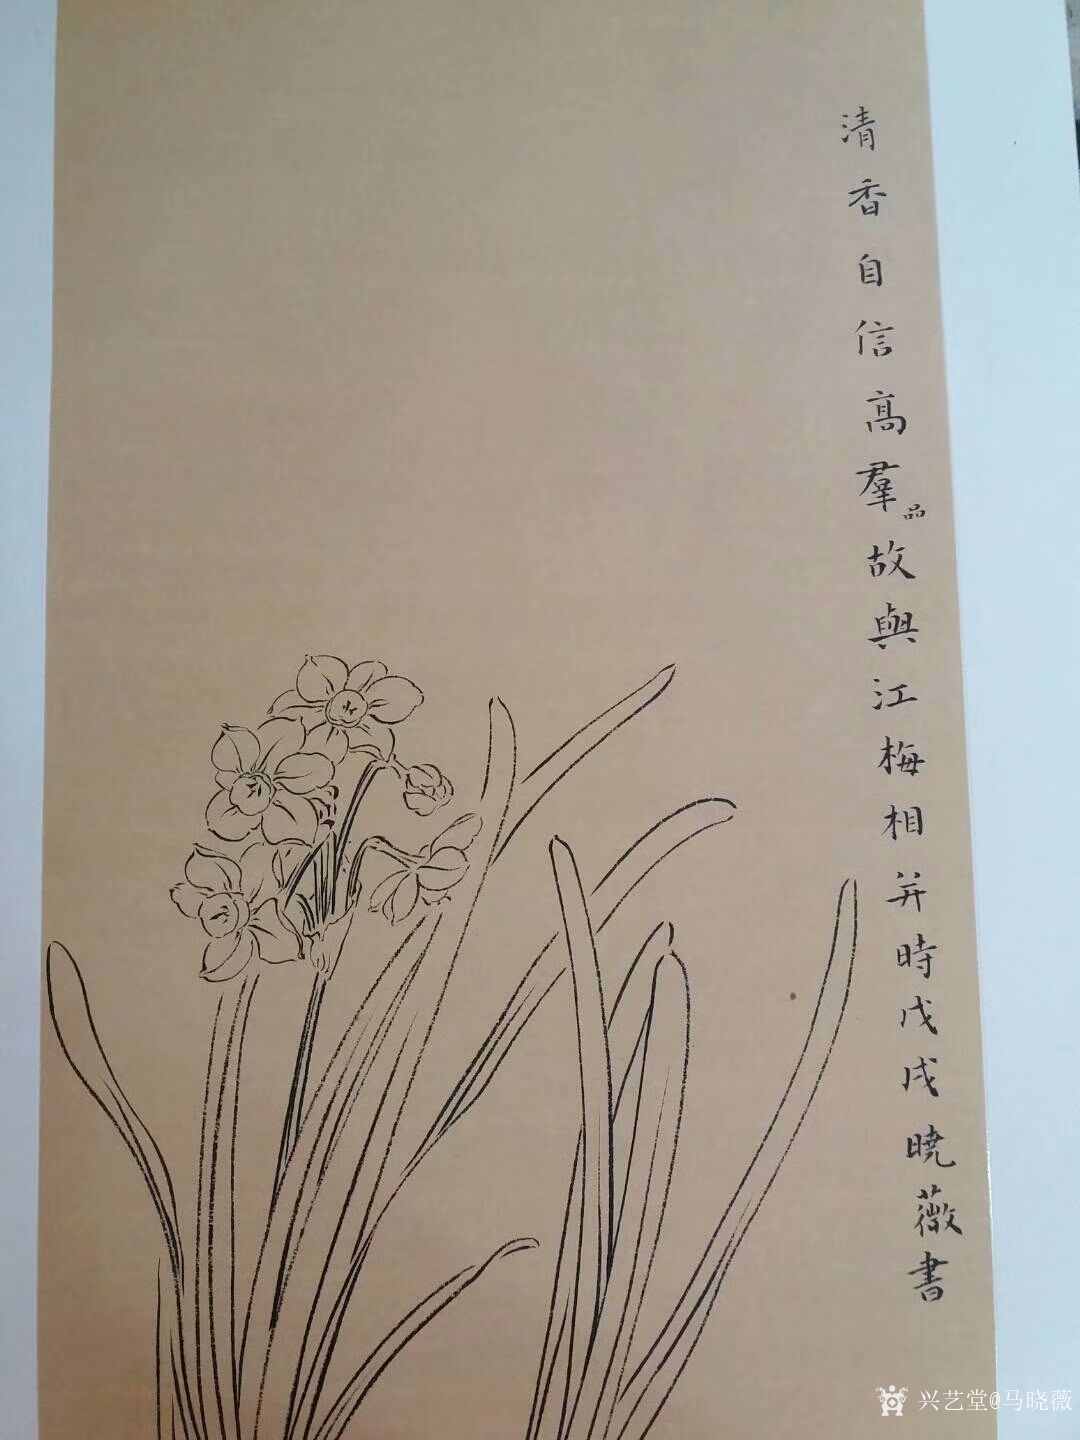 清香自信高羣品故與江梅相并時戊戌曉薇書
兴艺堂@马晓薇